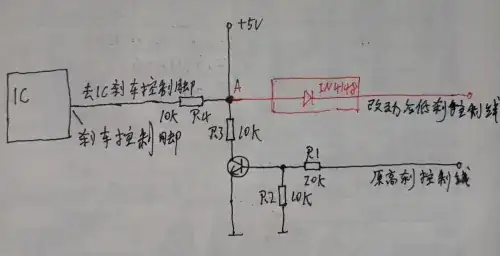 +5V
IC
去IC刹车控制脚
A
IN4148
10K R4
改动为低刹控制线
刹车控制脚
R3 10K
R1
20K
原高刹控制线
R2 10K